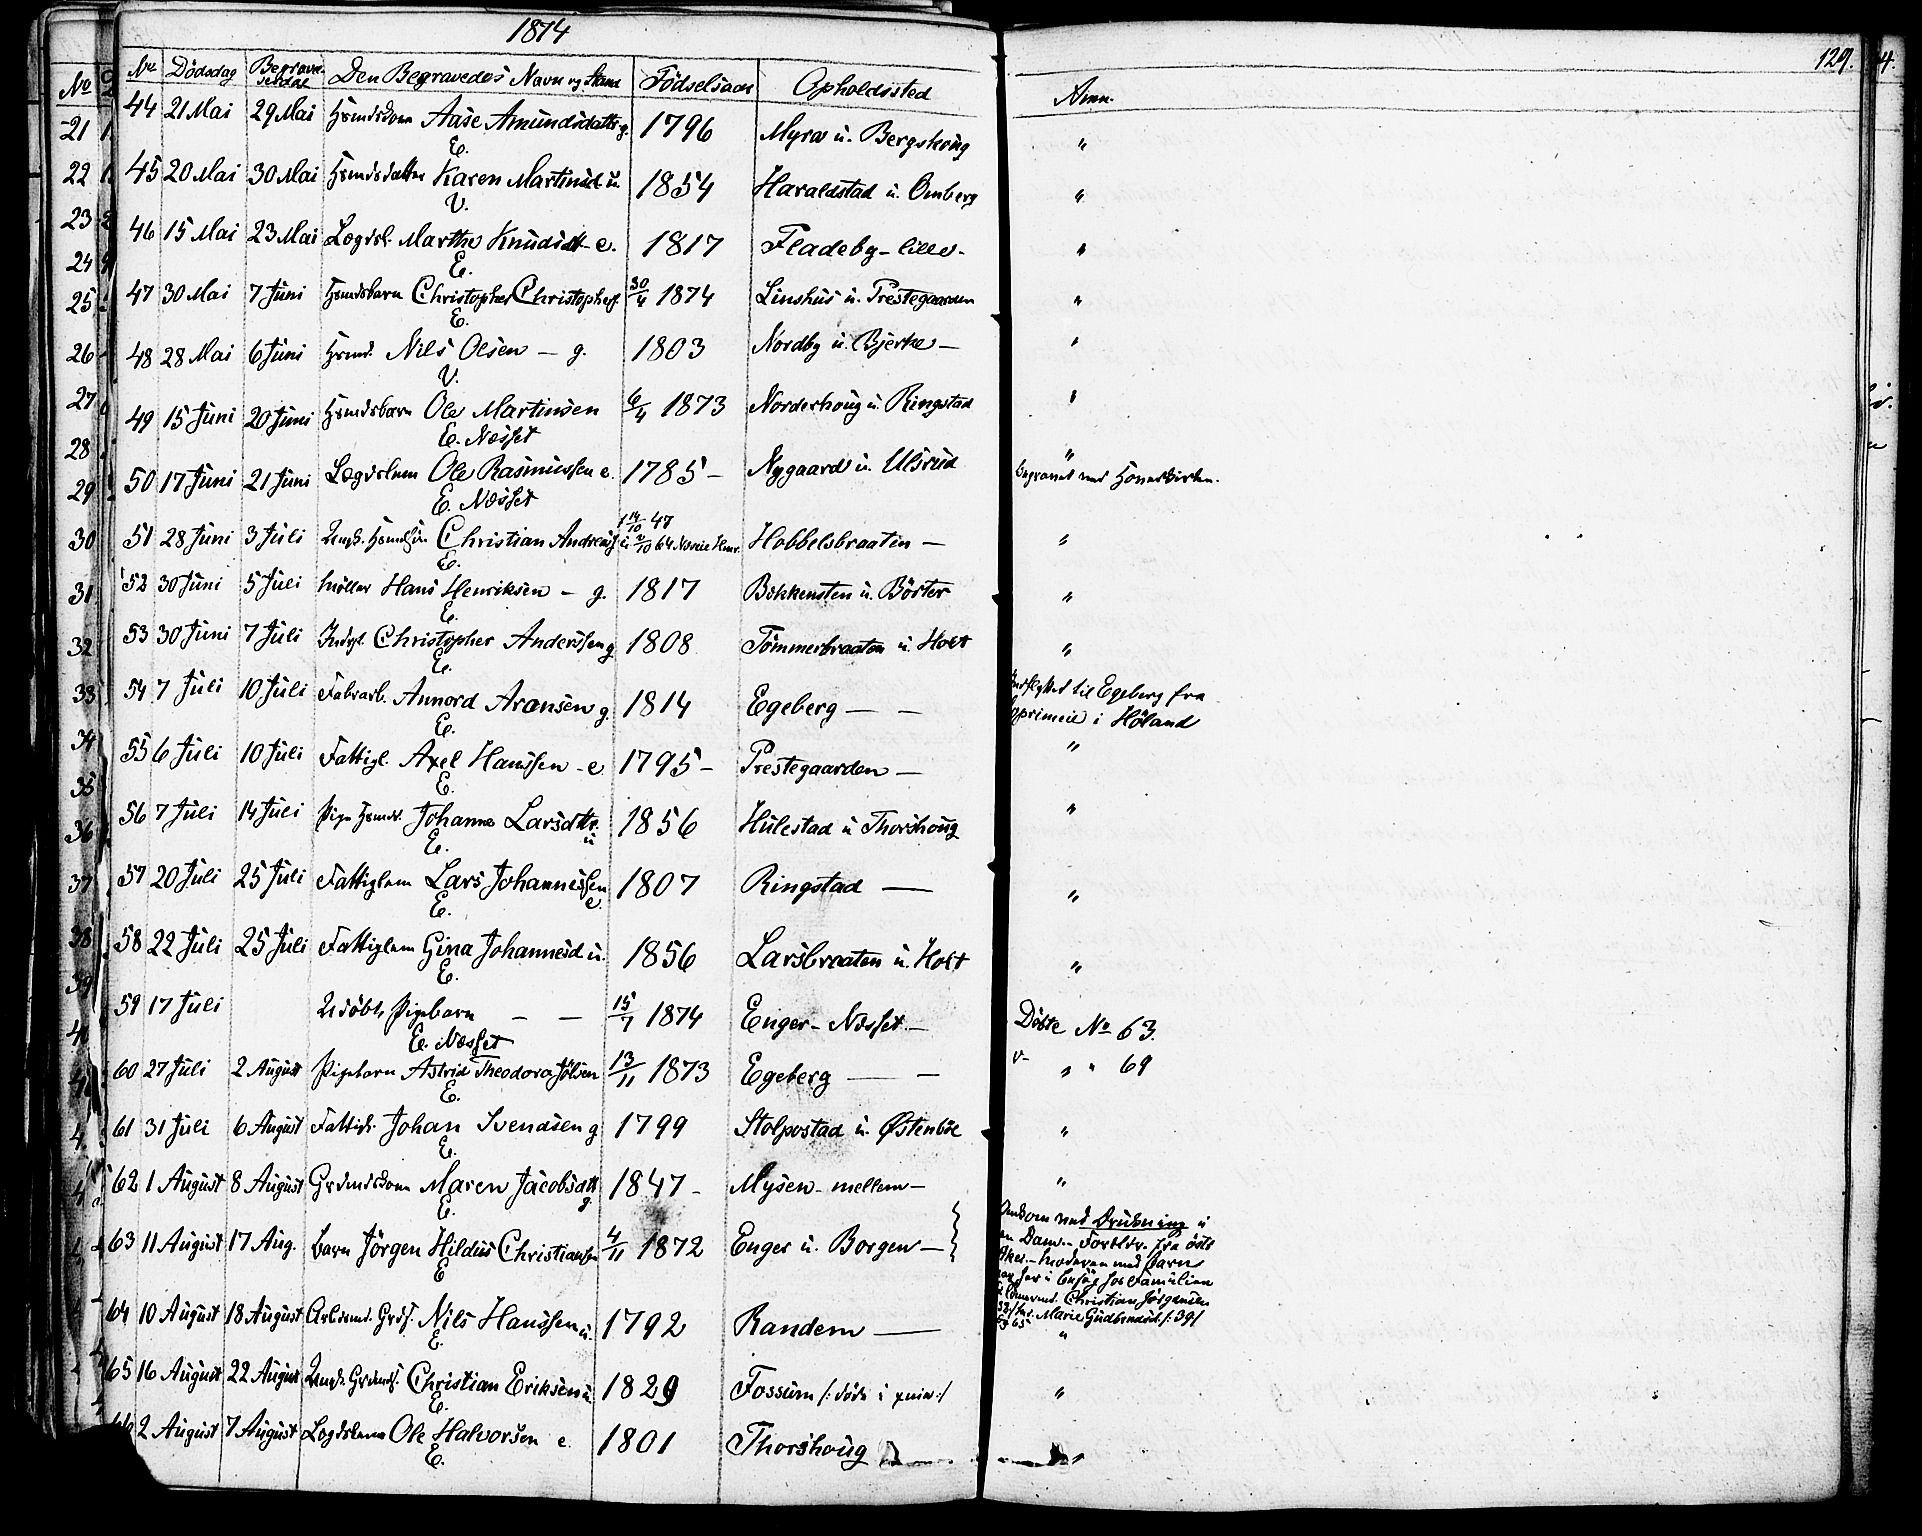 1874
129.
4.
No
No Dödsdag Begravelsesdag Den Begravedes Navn og Stand Födselsaar Opholdssted Anm.
44 21 Mai 29 Mai Hsmdskone Aase Amundsdatter g. 1796 Myra u. Bergshoug "
E.
45 20 Mai 30 Mai Hsmdsdatter Karen Martinsd. u. 1854 Haraldstad u. Omberg "
V.
46 15 Mai 23 Mai Lægdsl. Marthe Knudsdt e. 1817 Fladeby - lille - "
E.
47 30 Mai 7 Juni Hsmdsbarn Christopher Christophers. 30/4 1874 Linshus u. Prestegaarden "
E.
48 28 Mai 6 Juni Hsmd. Nils Olsen - g. 1803 Nordby u. Bjerke - "
V.
49 15 Juni 20 Juni Hsmdsbarn Ole Martinsen 6/4 1873 Norderhoug u. Ringstad "
E. Næsset
50 17 Juni 21 Juni Lægdslem Ole Rasmussen e. 1785 - Nygaard u. Ulsrud " begravet ved
E. Næsset
51 28 Juni 3 Juli Ungk. Hsmdsön Christian Andreas 14/10 47 Hobbelsbraaten - "
E.
52 30 Juni 5 Juli Möller Hans Henriksen - g. 1817 Bekkensten u. Börter "
E.
53 30 Juni 7 Juli Indgl. Christopher Anderssen g 1808 Tömmerbraaten u. Holt "
E.
54 7 Juli 10 Juli Fabrarb. Annord Aronsen g. 1814 Egeberg - - Indflyttet til Egeberg fra
E. i Höland
55 6 Juli 10 Juli Fattigl. Axel Hanssen - e 1795 - Prestegaarden - "
E.
56 7 Juli 14 Juli Pige Hsmds. Johanne Larsdtr. u 1856 Hulestad u Thorshoug "
E.
57 20 Juli 25 Juli Fattiglem Lars Johannessen e. 1807 Ringstad - "
E.
58 22 Juli 25 Juli Fattiglem Gina Johannesd u. 1856 Larsbraaten u. Holt "
E.
59 17 Juli Udöbt Pigebarn - - 15/7 1874 Enger - Næsset - Döbte No 63.
E. Næsset
60 27 Juli 2 August Pigebarn Astrid Theodora Jölsen 13/11 1873 Egeberg - - " " 69
E.
61 31 Juli 6 August Fattigl. Johan Svendsen g 1799 Stolpestad u. Østenbøe "
E.
62 1 August 8 August Grdmdskone Maren Jacobsdtt g 1847 - Mysen - mellem - "
E.
63 11 August 17 Aug. Barn Jörgen Hildus Christiansen 4/11 1872 Enger u. Borgen - Omkom ved Drukning i
E en Dam. - Forældr. fra Östr
Aker. - Moderen med Barn
var her i Besög hos Familien
Christian Jörgensen
Marie Gudbrandsd. /: 39/
64 10 August 18 August Arbsmd. Grds. Nils Hanssen u. 1792 Randem - "
E.
65 16 August 22 August Ungk. Grdmds. Christian Eriksen u 1829 Fossum "
E.
66 2 August 7 August Lægdslem Ole Halvorsen e. 1801 Thorshoug "
E.
21
22
23
24
25
26
27
28
29
30
31
32
33
34
35
36
37
38
39